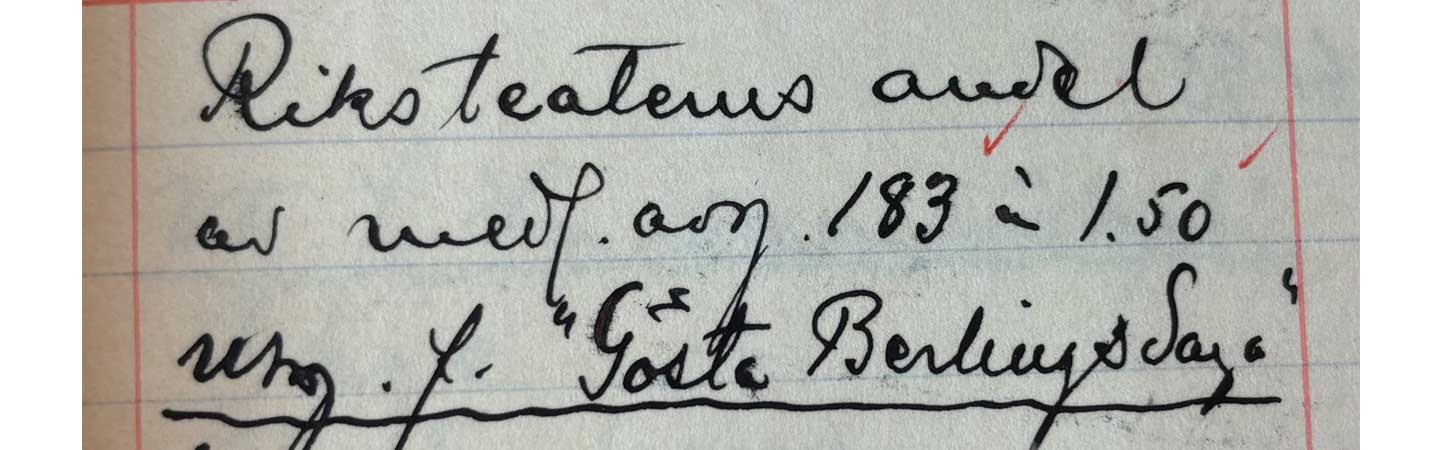 Riksteaterns andel
av medl. avg. 183 à 1.50
f. "Gösta Berlings Saga"